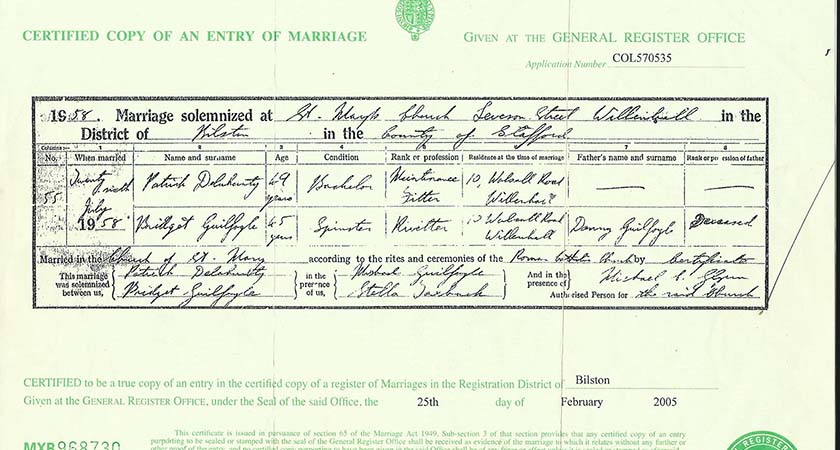 CERTIFIED COPY OF AN ENTRY OF MARRIAGE
GIVEN AT THE GENERAL REGISTER OFFICE
Application Number COL570535
1958. Marriage solemnized at St. Mary's Church Leveson Street Willenhall in the
District of Bilston in the County of Stafford
Columns:- 1 2 3 4 5 6 7 8
No. When married Name and surname Age Condition Rank or profession Residence at the time of marriage Father's name and surname Rank or profession of father
55 Twenty sixth July 1958 Patrick Delahunty 49 years Bachelor Maintenance Fitter 10, Walsall Road Willenhall
Bridget Guilfoyle 45 years Spinster Rivetter 10 Walsall Road Willenhall Danny Guilfoyle Deceased
Married in the Church of St. Mary according to the rites and ceremonies of the Roman Catholic Church by Certificate
This marriage was solemnized between us, Patrick Delahunty Bridget Guilfoyle in the presence of us, Guilfoyle Stella And in the presence of Michael Authorised Person for the said Church
CERTIFIED to be a true copy of an entry in the certified copy of a register of Marriages in the Registration District of Bilston
Given at the GENERAL REGISTER OFFICE, under the Seal of the said Office, the 25th day of February 2005
This certificate is issued in pursuance of section 65 of the Marriage Act 1949. Sub-section 3 of that section provides that any certified copy of an entry
purporting to be sealed or stamped with the seal of the General Register Office shall be received as evidence of the marriage to which it relates without any further or
MXB 968730
REGISTER